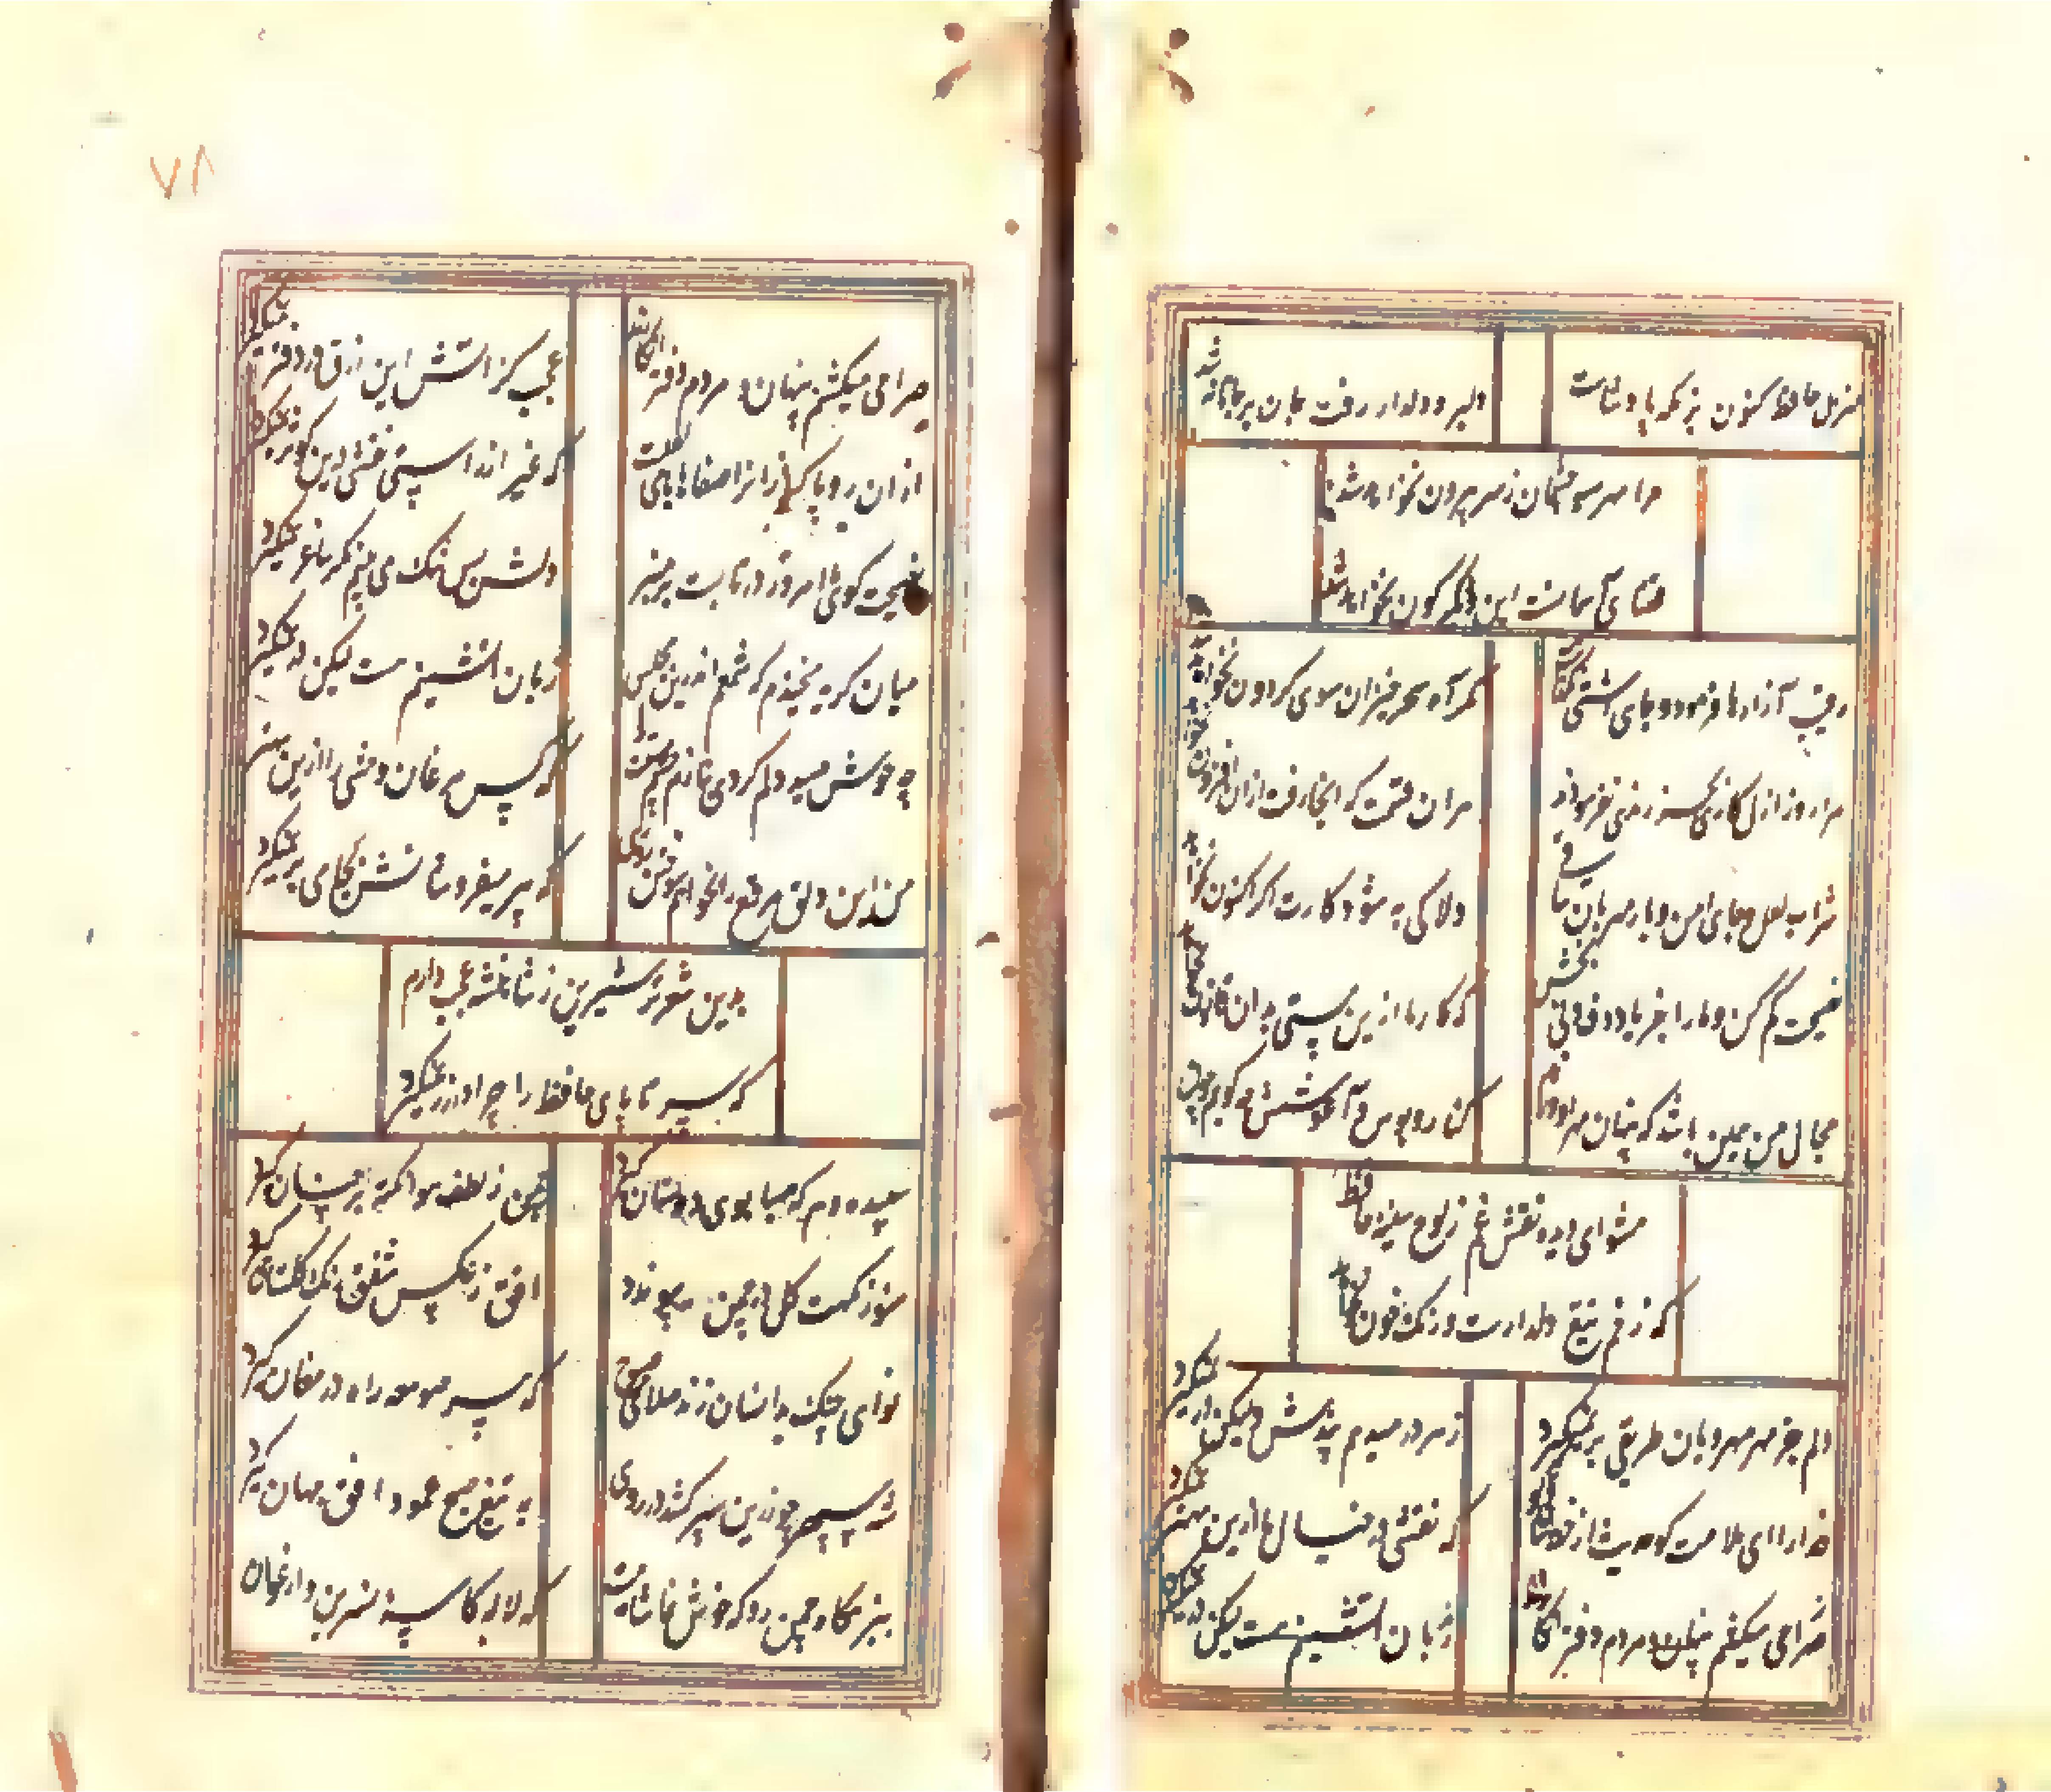 منزل حافظ کنون بزمگه پادشاست
دلبر و دلدار رفت جان بر جانانه شد
مرا مهر سیه چشمان ز سر بیرون نخواهد شد
قضای آسمانست این و دیگرگون نخواهد شد
رقیب آزارها فرمود و جای آشتی نگذاشت
مگر آه سحرخیزان سوی گردون نخواهد شد
مرا روز ازل کاری بجز رندی نفرمودند
هر آن قسمت که آنجا رفت از آن افزون نخواهد شد
شراب لعل و جای امن و یار مهربان ساقی
دلا کی به شود کارت اگر اکنون نخواهد شد
نصیحت کم کن و ما را بفریاد دف و نی بخش
که کار ما ازین پستی بدان قانون نخواهد شد
مجال من همین باشد که پنهان مهر او ورزم
کنار و بوس و آغوشش چه گویم چون نخواهد شد
مشو ای دیده نقش غم ز لوح سینه حافظ
که زخم تیغ دلدارست و رنگ خون نخواهد شد
دلم جز مهر مهرویان طریقی بر نمیگیرد
ز هر در میدهم پندش ولیکن در نمیگیرد
خدا را ای ملامت گو حدیث از
که نقشی در خیال ما ازین بهتر نمیگیرد
صراحی میکشم پنهان و مردم دفتر انگارند
زبان آتشینم هست لیکن در نمیگیرد
۷۸
صراحی میکشم پنهان و مردم دفتر انگارند
عجب گر آتش این زرق در دفتر نمیگیرد
از آن رو پاکبازانرا صفاها با می لعلست
که غیر از راستی نقشی درین گوهر نمیگیرد
نصیحت گوی
دلش بس تنگ می بینم مگر ساغر نمیگیرد
میان گریه میخندم که شمع اندرین مجلس
زبان آتشینم هست لیکن در نمیگیرد
چه خوش صید دلم کردی بنازم چشم مستت را
که کس مرغان وحشی را ازین بهتر
من این دلق مرقع را بخواهم سوختن روزی
که پیر میفروشانش بجامی بر نمیگیرد
بدین شعر تر شیرین ز شاهنشه عجب دارم
که سر تا پای حافظ را چرا در زر نمیگیرد
سپیده دم که صبا بوی دوستان گیرد
چمن ز لطف هوا نکته بر جنان گیرد
هوا ز نکهت گل در چمن
افق ز عکس شفق رنگ گلستان گیرد
نوای چنگ بدانسان زند صلای صبوح
که پیر صومعه راه در مغان گیرد
شه سپهر چو زرین سپر کشد در روی
به تیغ صبح و عمود افق جهان گیرد
ببزمگاه چمن رو که خوش تماشاییست
که لاله کاسه نسرین و ارغوان